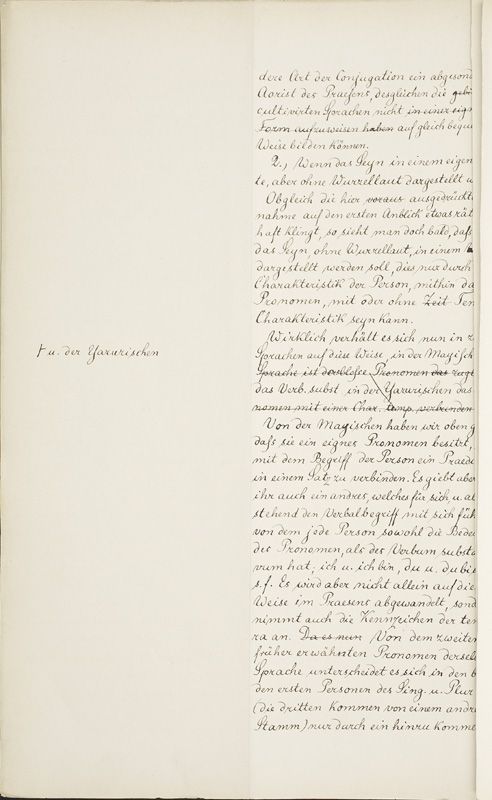 dere Art der Conjugation ein abgesond
Aorist des Praesens, desgleichen die gebi
cultivirten Sprachen nicht in einer eign
Form aufzuweisen haben auf gleich beque
Weise bilden können.
2., Wenn das Seyn in einem eigen
te, aber ohne Wurzellaut dargestellt w
Obgleich die hier voraus ausgedrückte
nahme auf den ersten Anblick etwas rät
haft klingt, so sieht man doch bald, daß
das Seyn, ohne Wurzellaut, in einem
dargestellt werden soll, dies nur durch
Charakteristik der Person, mithin da
Pronomen, mit oder ohne Zeit Ten
Charakteristik seyn kann.
Wirklich verhält es sich nun in z
† u. der Yarurischen
Sprachen auf diese Weise, in der Mayisch
Sprache ist das bloße Pronomen das zugl
das Verb. subst in der Yarurischen das
nomen mit einer Char. temp. verbunden
Von der Mayischen haben wir oben g
daß sie ein eignes Pronomen besitzt,
mit dem Begriff der Person ein Praedi
in einem Satz zu verbinden. Es giebt aber
ihr auch ein andres, welches für sich, u. al
stehend den Verbalbegriff mit sich füh
von dem jede Person sowohl die Bedeu
des Pronomen, als des Verbum substa
vum hat, ich u. ich bin, du u. du bis
s. f. Es wird aber nicht allein auf die
Weise im Praesens abgewandelt, sond
nimmt auch die Kennzeichen der tem
ra an. Da es nun Von dem zweiten
früher erwähnten Pronomen dersel
Sprache unterscheidet es sich in den b
den ersten Personen des Sing. u. Plur
(die dritten kommen von einem andr
Stamm) nur durch ein hinzu komme